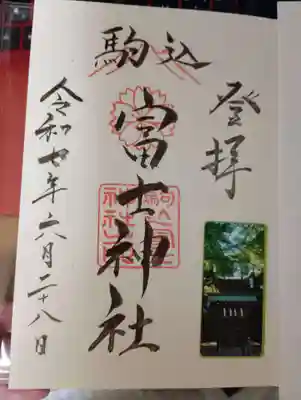 登拝
駒込
富士神社
令和七年六月二十八日